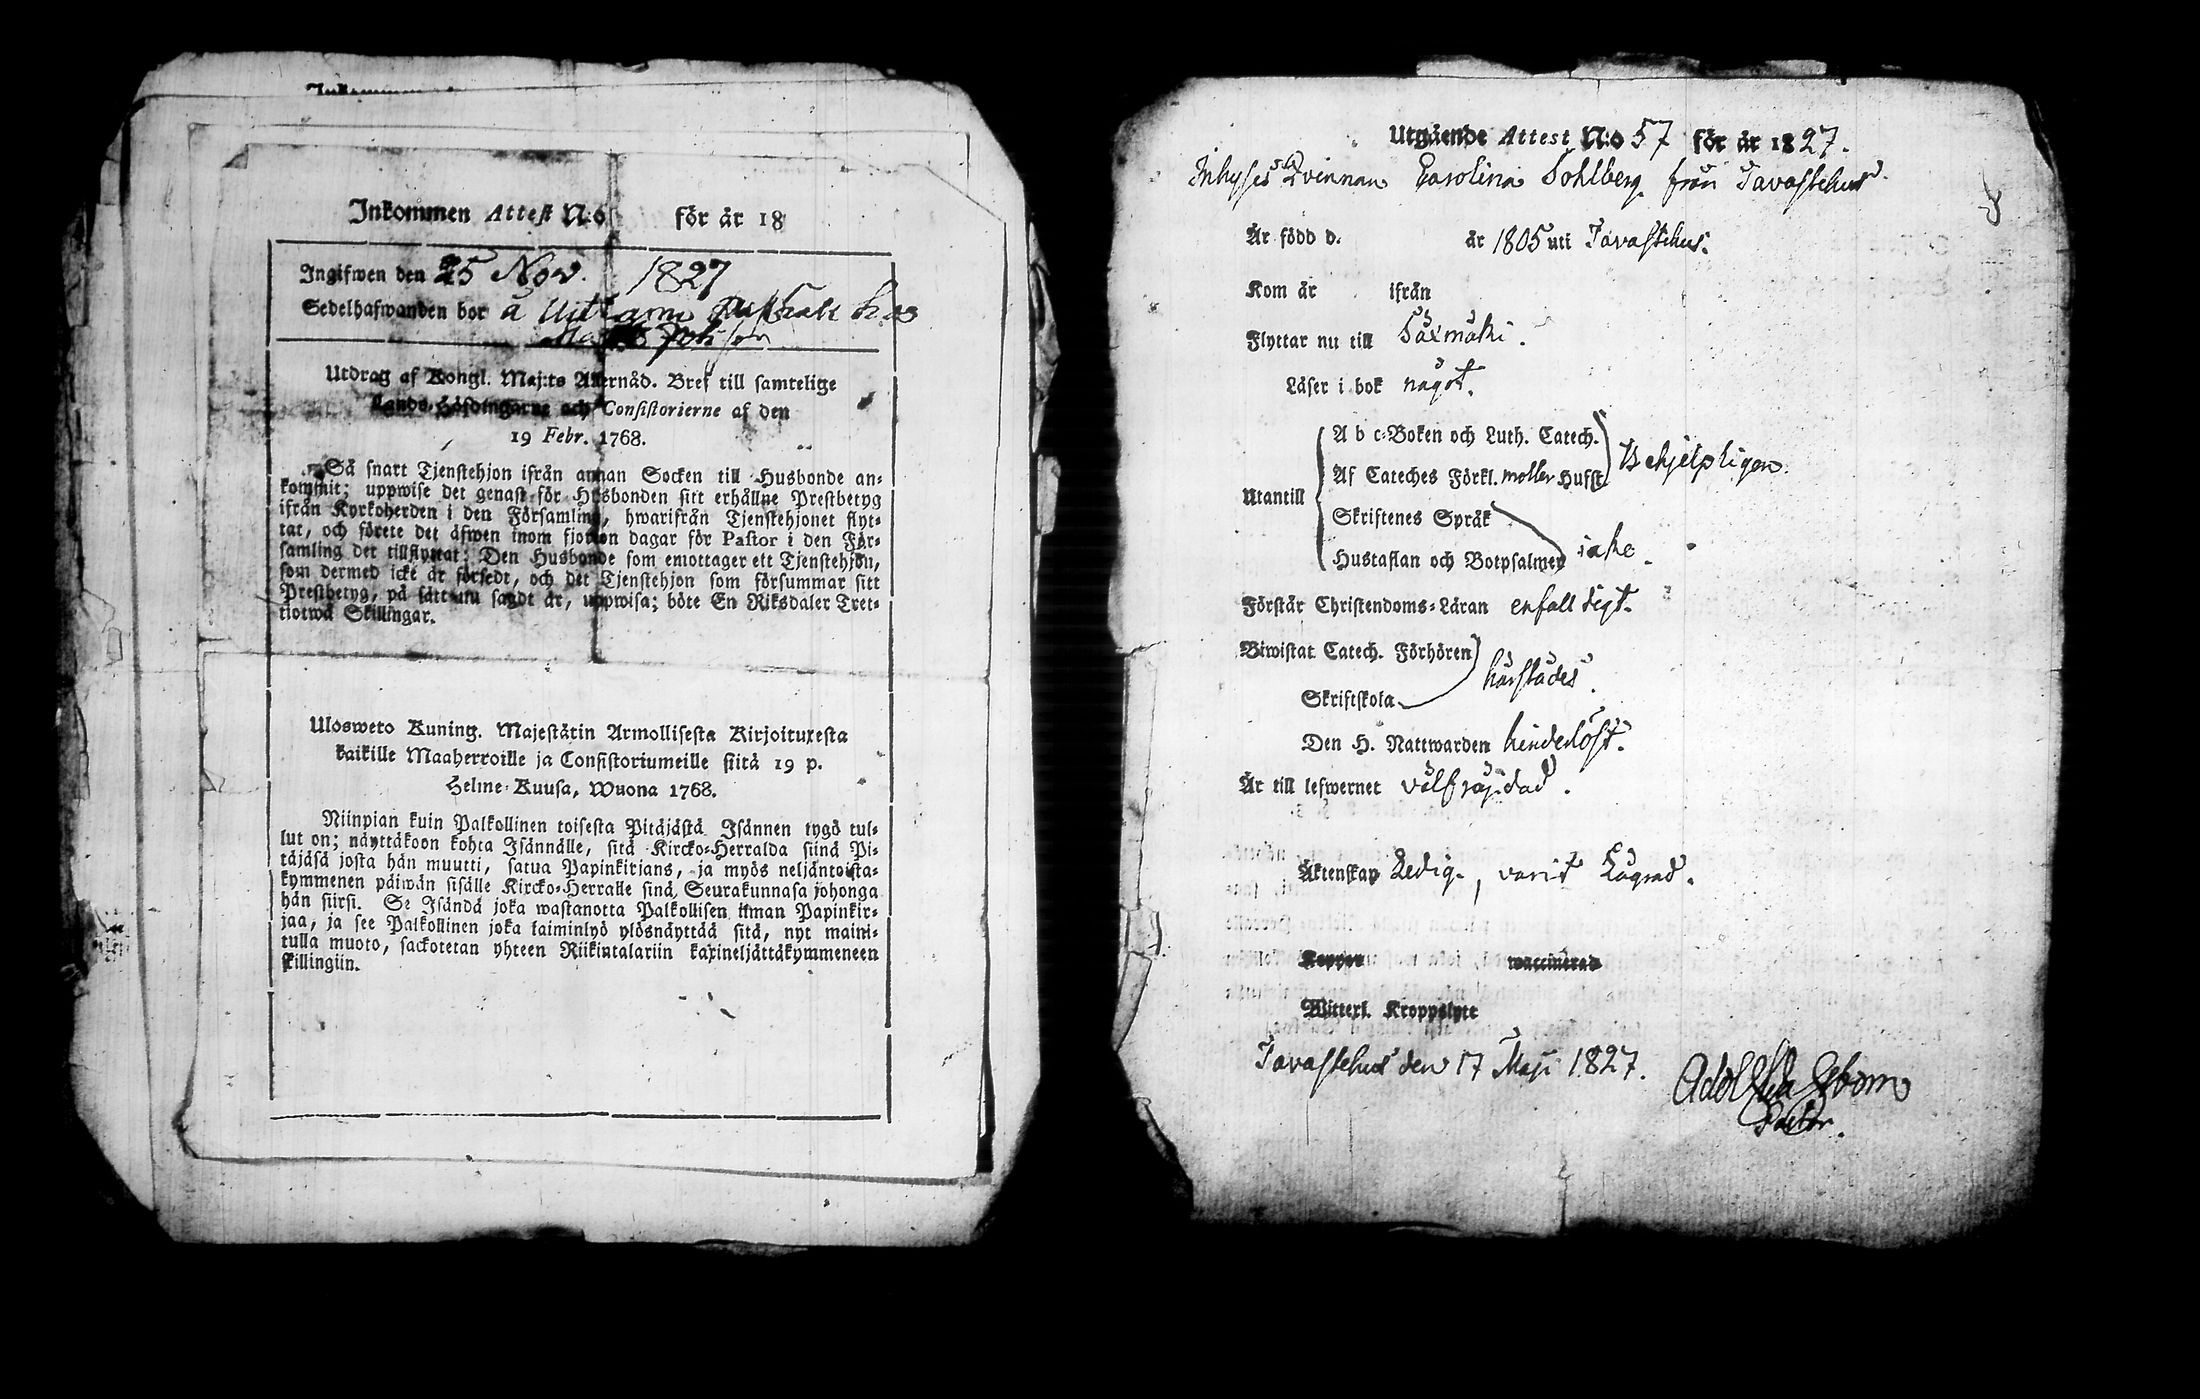 Inkommen Attest N:o för år 18
Ingifwen den 25 Nov. 1827
Sedelhafwanden bor å hos
Utdrag af Kongl. Maj:ts Allernåd. Bref till samtelige
Lands-Höfdingarne och Consistorierne af den
19 Febr. 1768.
Så snart Tjenstehjon ifrån annan Socken till Husbonde an-
kommit; uppwise det genast för Husbonden sitt erhållne Prestbetyg
ifrån Kyrkoherden i den Församling, hwarifrån Tjenstehjonet flyt-
tat, och förete det äfwen inom fjorton dagar för Pastor i den För-
samling det tillflyttat: Den Husbonde som emottager ett Tjenstehjon,
som dermed icke är försedt, och det Tjenstehjon som försummar sitt
Prestbetyg, på sätt nu sagdt är, uppwisa; böte En Riksdaler Tret-
tiotwå Skillingar.
Ulosweto Kuning. Majestätin Armollisesta Kirjoituxesta
kaikille Maaherroille ja Consistoriumeille siitä 19 p.
Helme-Kuusa, Wuona 1768.
Niinpian kuin Palkollinen toisesta Pitäjästä Isännen tygö tul-
lut on; näyttäkoon kohta Isännälle, sitä Kircko-Herralda siinä Pi-
täjäsä josta hän muutti, satua Papinkirjans, ja myös neljäntoista-
kymmenen päiwän sisälle Kircko-Herralle sinä Seurakunnasa johonga
hän siirsi. Se Isändä joka wastanotta Palkollisen ilman Papinkir-
jaa, ja see Palkollinen joka laiminlyö ylösnäyttää sitä, nyt maini-
tulla muoto, sackotetan yhteen Riikintalariin kaxineljättäkymmeneen
skillingiin.
Utgående Attest N:o 57 för år 1827.
Inhyses Qvinnan Carolina Sohlberg från Tavastehus
Är född d. år 1805 uti Tavastehus.
Kom år ifrån
Flyttar nu till Säxmäki.
Läser i bok något.
A b c-Boken och Luth. Catech.
Af Cateches Förkl. moller Hufst. Behjelpligen
Utantill
Skriftenes Språk
Hustaflan och Botpsalmer icke.
Förstår Christendoms-Läran enfalldigt.
Biwistat Catech. Förhören
härstädes.
Skriftskola
Den H. Nattwarden hinderlöst.
Är till lefwernet välfräjdad.
Äktenskap Ledig, varit Lägrad.
Koppor waccinerad
Witterl. Kroppslyte
Tavastehus den 17 Maji 1827.
Pastor.